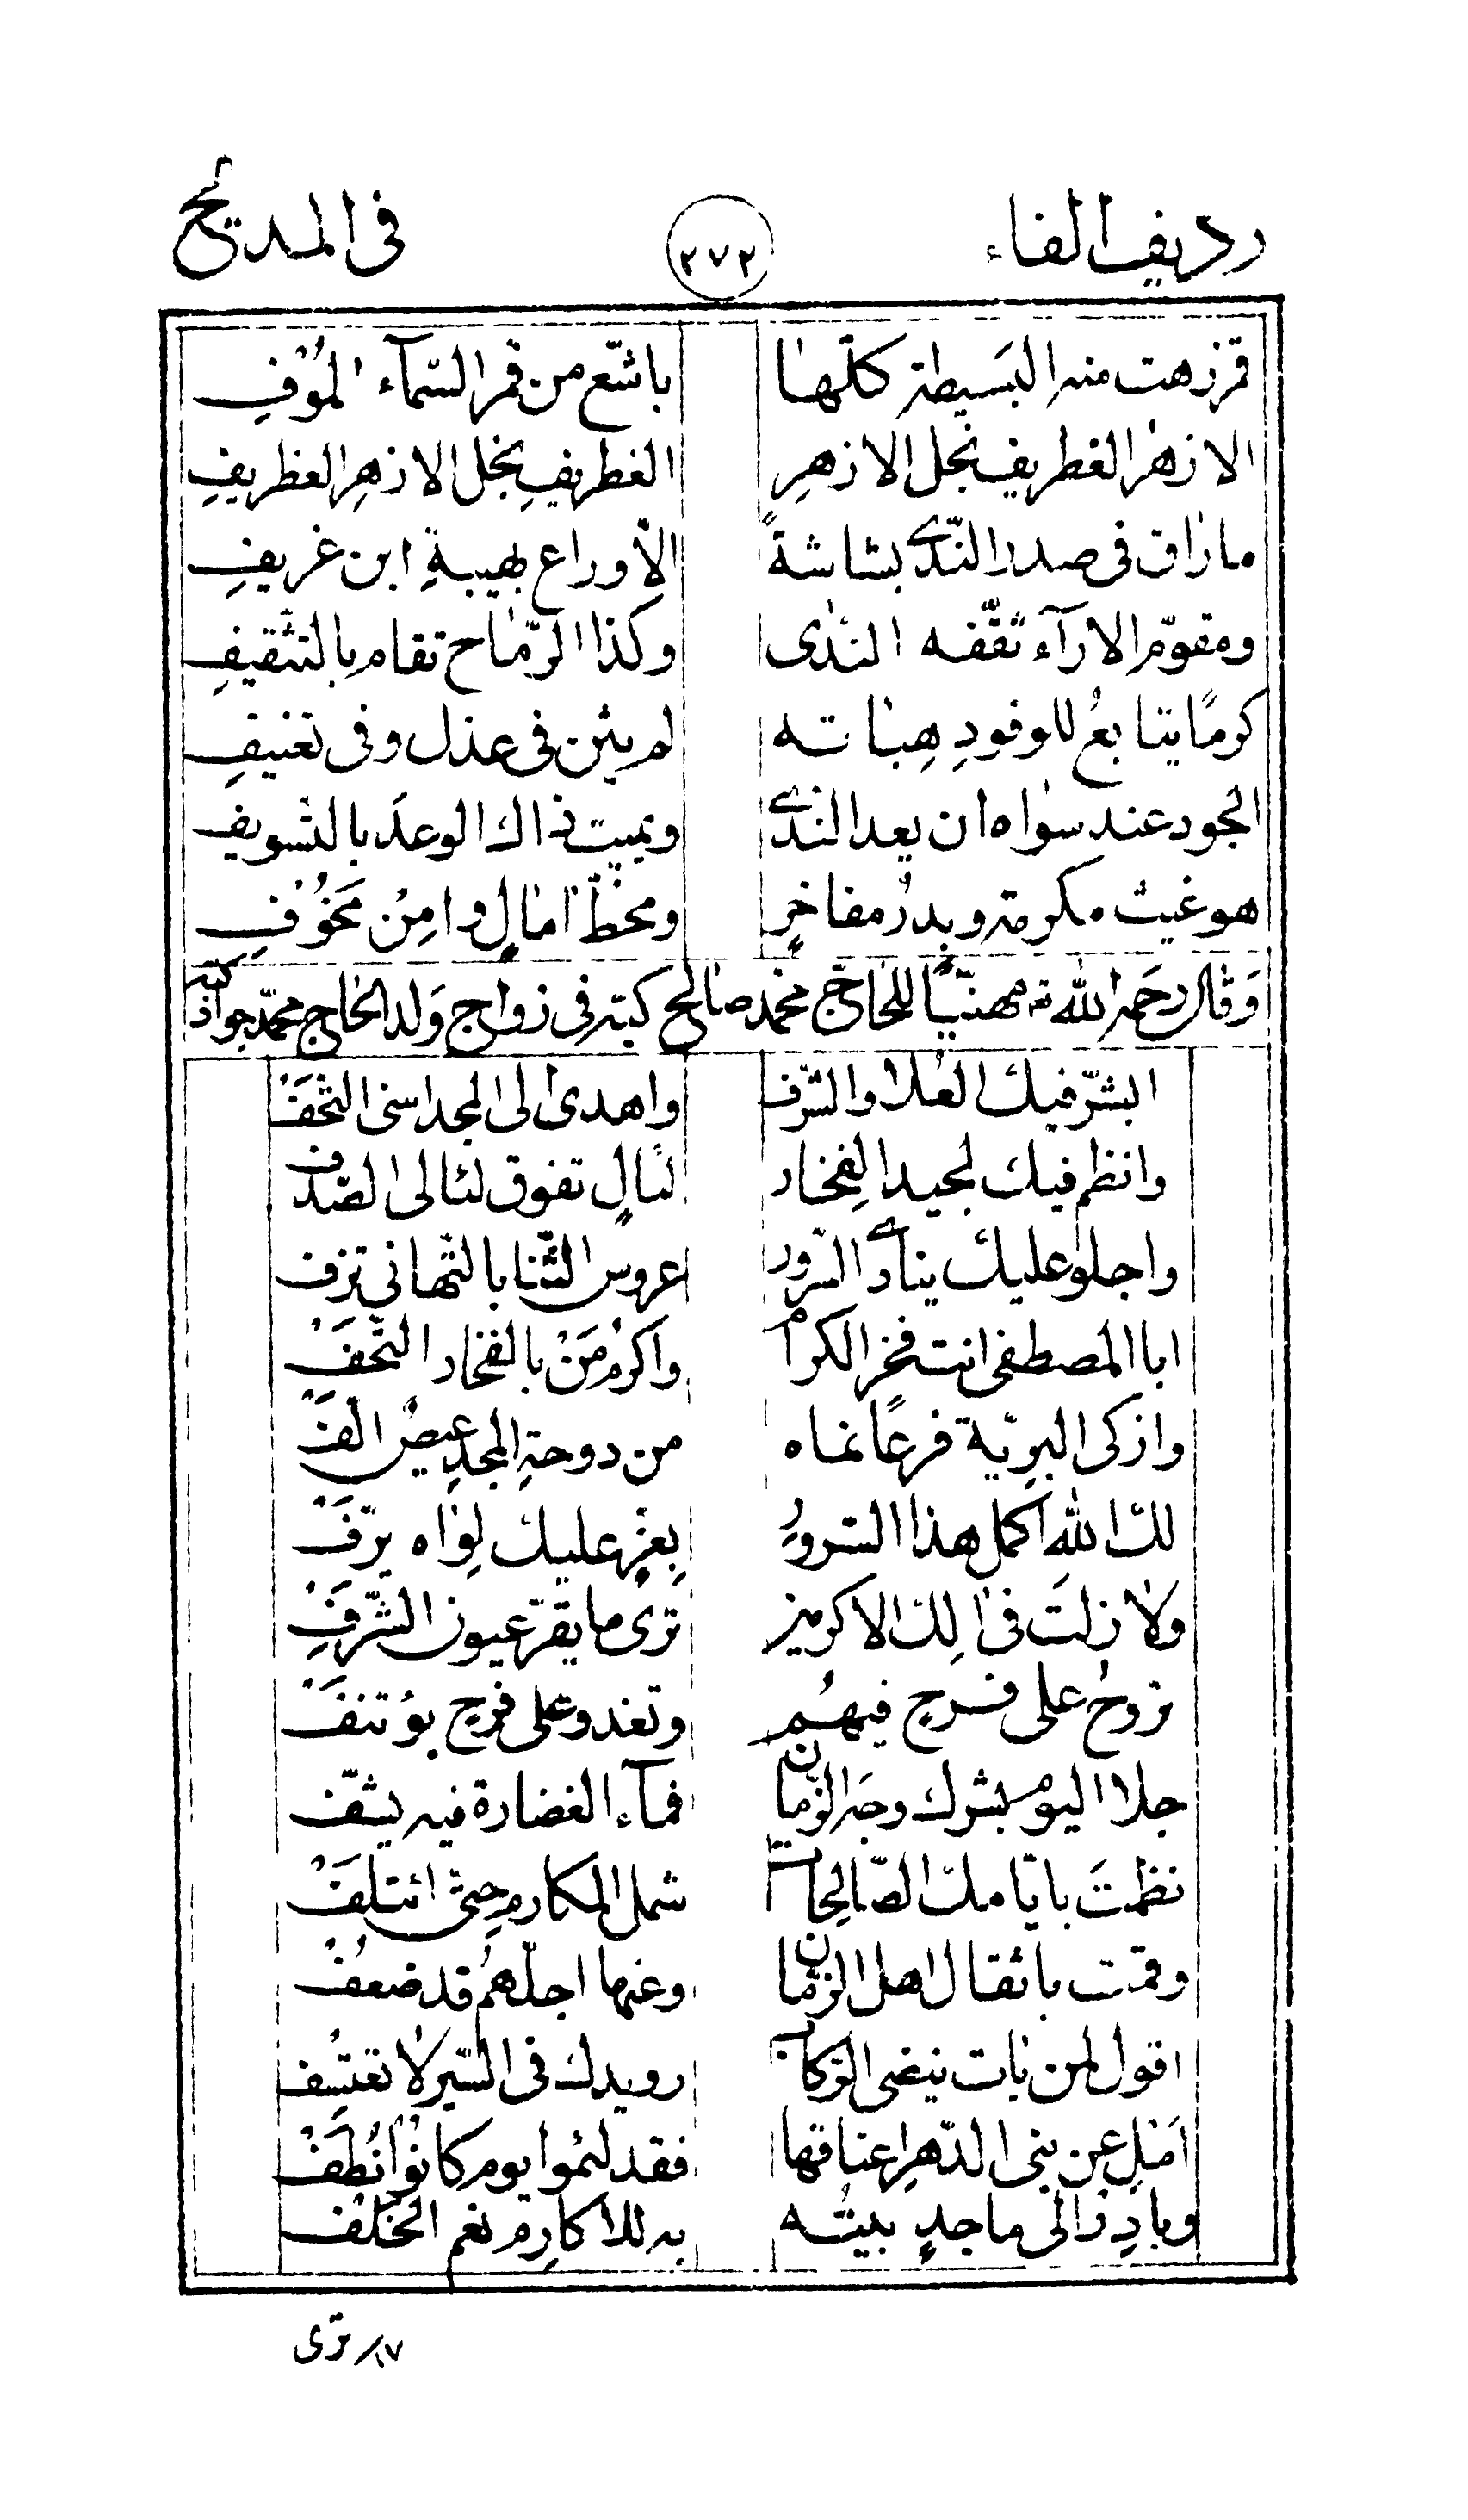 رديف الفاء ٢٧٢ فى المديح
قمر زهت منه البسيطة كلها باشع من قمر السمآء الموفِ
الازهر الغطريف نجل الازهرِ الغطريفِ نجل الازهرِ الغطريفِ
ما راق فى صدر الندى بشاشةً الأوراع بهيبةِ ابن غريفِ
ومقوّم الارآء ثقّفه الندى وكذا الرّماح تقام بالتثقيفِ
كرمًا يتابعُ للوفودِ هِباته لم يثن فى عذل وفى تعنيفِ
الجود عند سواه ان يعد الندى ويميت ذاك الوعدَ بالتسويف
هو غيث مكرمة وبدرُ مفاخرٍ ومحطّ امالٍ وامِنُ مَخُوْفِ
وَقال رحمه الله تع مهنّيًا للحاج محمد صالح كبّه فى زواج وَلد الحاج محمّد جواد كبه
ابشّر فيك العُلا والشّرف واهدى الى المجد اسنى التّحَفْ
وانظم فيك لجيد الفِخار لئالٍ تفوق لئالى الصّدف
واجلو عليك بنادى السّرور عروس الثّنا بالتّهانى تزف
ابا المصطفى انت فخر الكرام واكرمُ مَنْ بالفخار التّحَفْ
وازكى البريّة فرعًا نماه من دوحةِ المجدِ عيصٌ الَفّ
لك الله اكمل هذا السّرورُ بِعزٍّ عليك لِواه يَرّفْ
ولا زلتَ فى اٰلِك الاكرمين ترى ما يقرّ عيون الشّرَفِ
تروحُ على فرحٍ فيهُمِ وتغدو على فرحٍ يؤتنَفْ
جلا اليوم بشرك وجه الزّمان فمآء الغضارة فيه يشفّ
نظمتَ بايّامك الصّالِحات شمل المكارم حتّى ائتلَفْ
وقمت باثقال اهل الزّمان وعنها اجلّهمُ قد ضعُفْ
اقول لمن بات ينضى الرّكاب رويدك فى السّير لا تعتسف
اَمِل عن بنى الدّهرِ اعناقها فقد لئموا يوم كانُوا نُطَفْ
وبادِر الى ماجدٍ بيتُه به للاكارِم نعم الخلف
١٧/ ترى